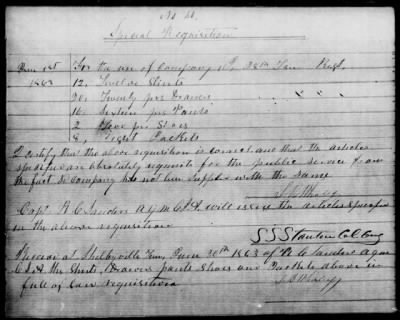 Special Requisition
For the use of Company 28th Ten Regt
1863 12, Twelve Shirts
20, Twenty prs Drawers " "
16, Sixteen prs Pants
2 prs Shoes
8, Eight Jackets
I certify that the above requisition is correct and that the articles
specified are absolutely requisite for the public service from
the fact Company has not been supplied with the same
Capt A.Q.M. C.S.A. will issue the articles specified
in the above requisition
S S Stanton Col. Comg
Received at Shelbyville Tenn, June 1863 of
C.S.A. the Shirts, Drawers pants Shoes and Jackets above in
full of said requisition